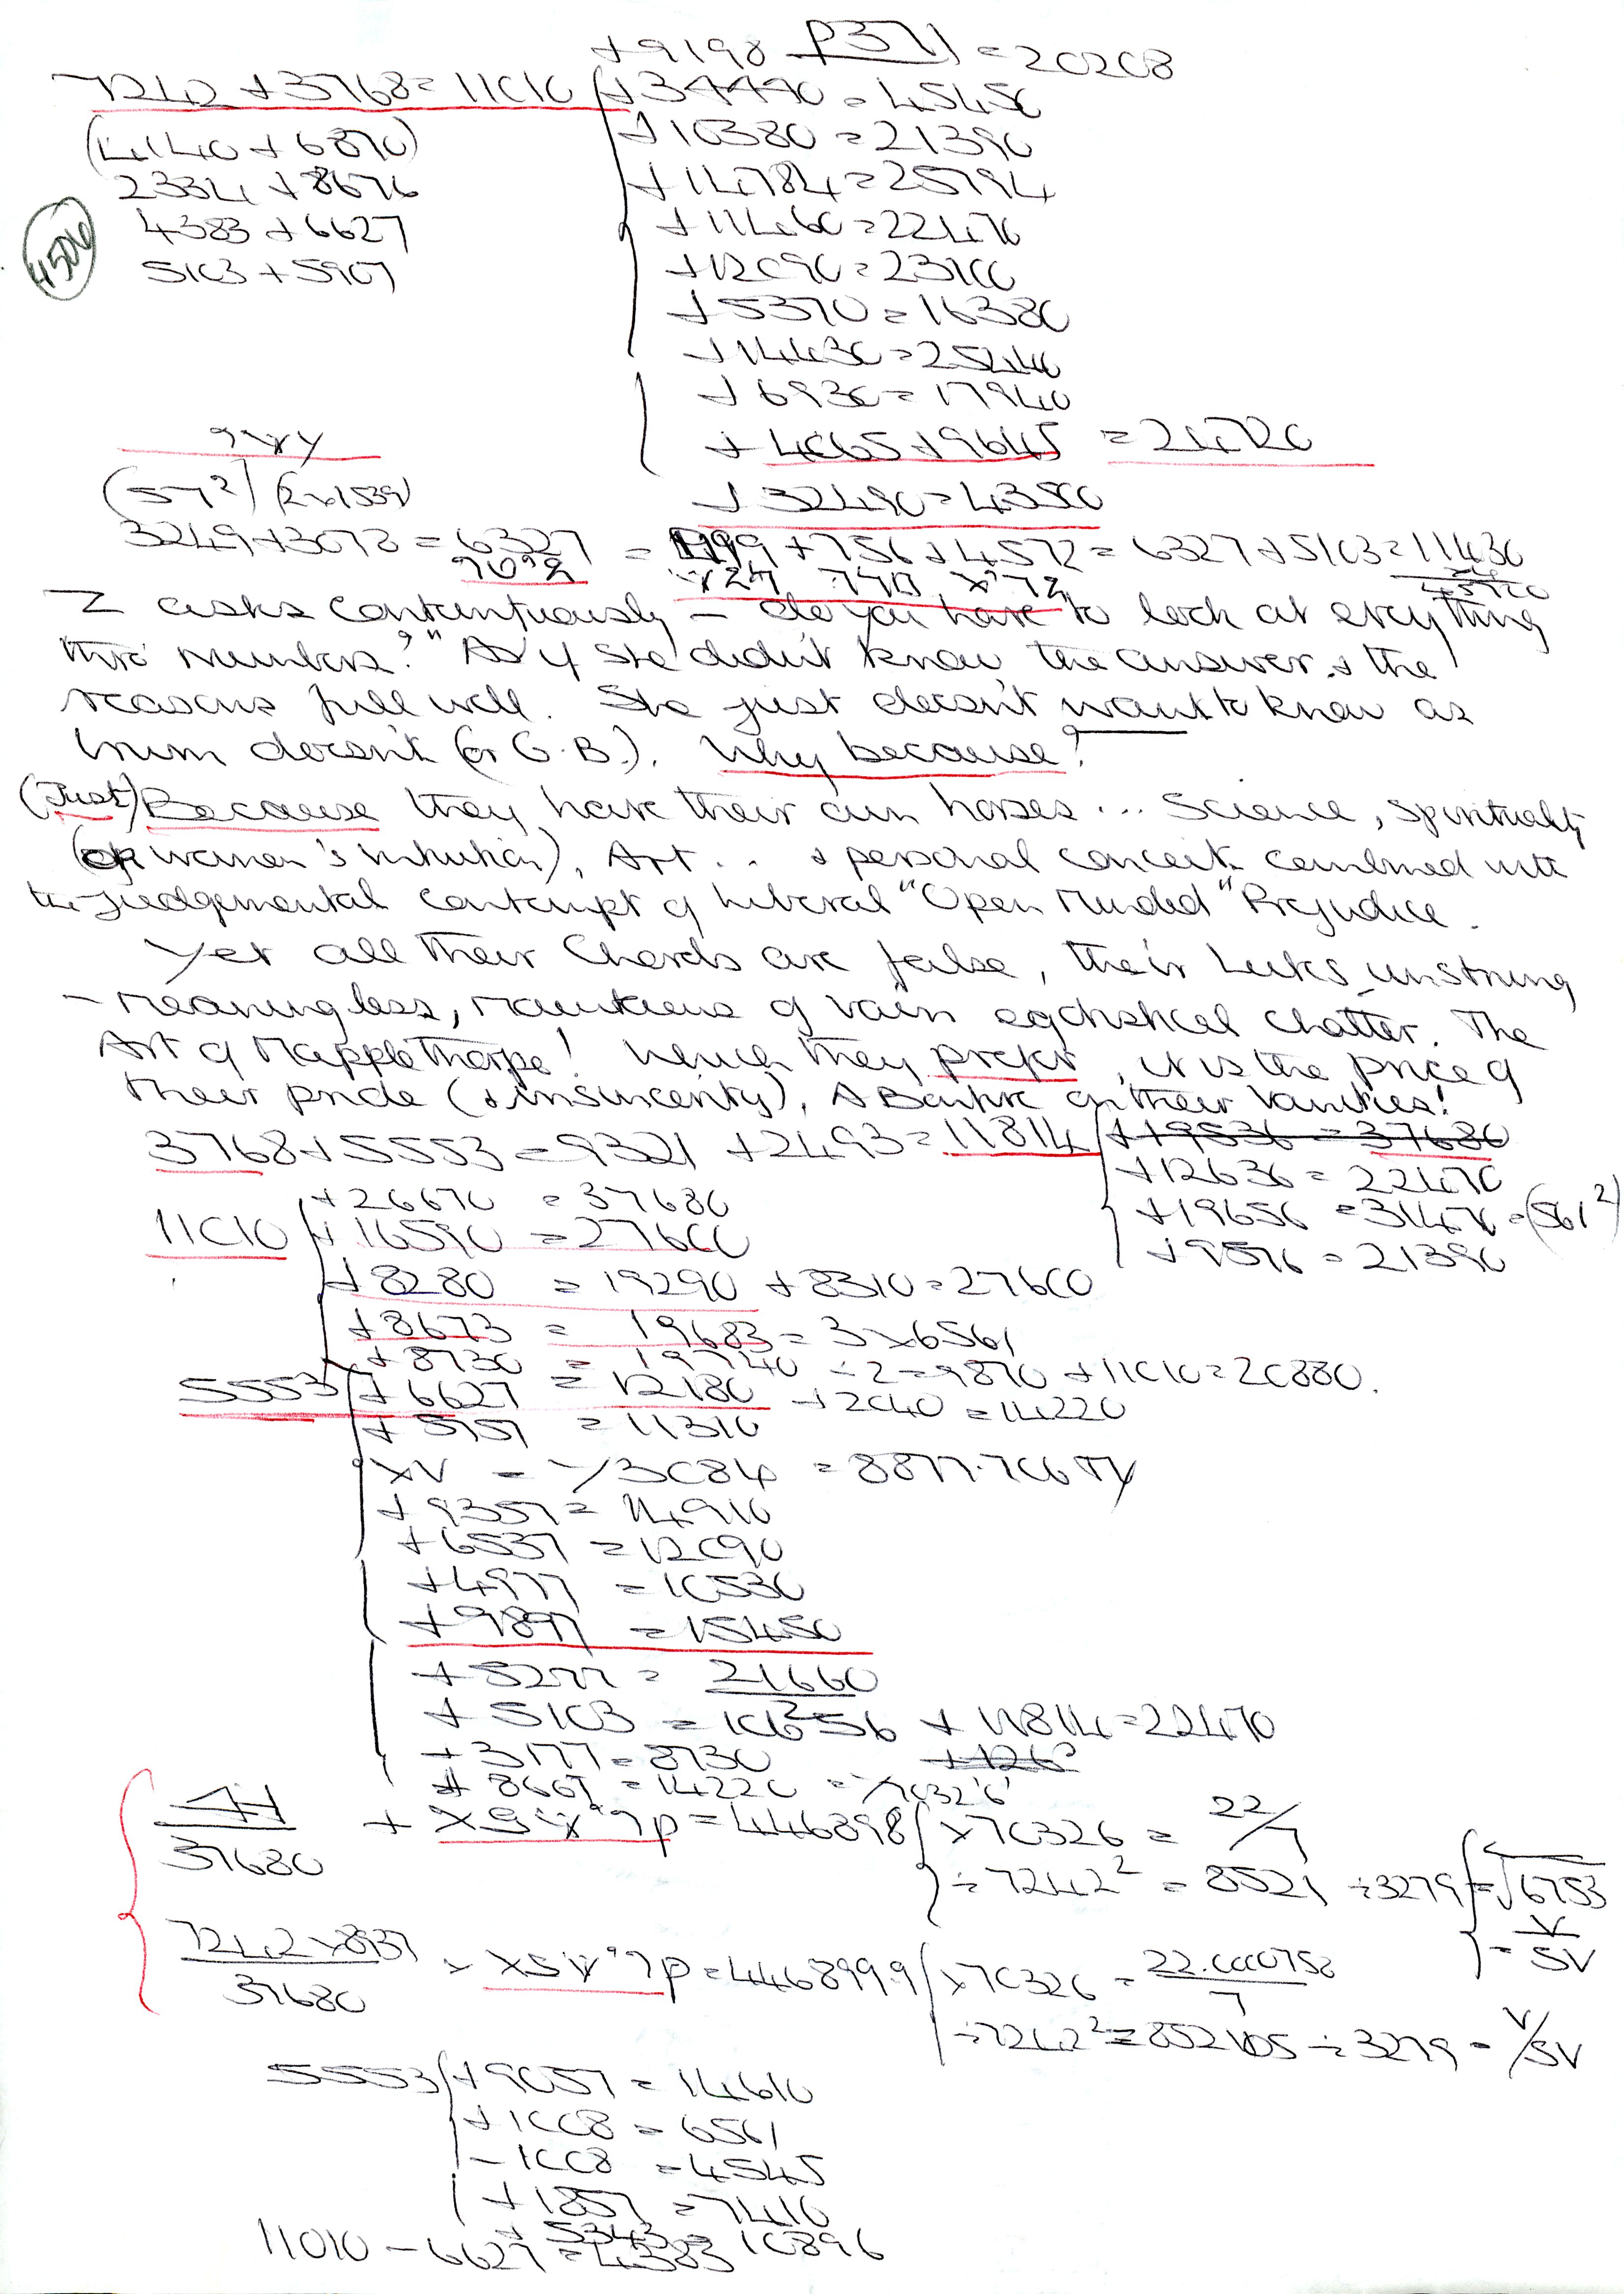 + 9198 = 20208
7242 + 3768 = 11010
(4140 + 6870)
+ 10380 = 21390
2334 + 8676
+ 14784 = 25794
4383 + 6627
+ 11460 = 22470
4506
5103 + 5907
+ 12090 = 23100
+ 5370 = 16380
+ 14430 = 25440
+ 6930 = 17940
+ 4065 + 9645 = 24720
(57²) (2x1539)
+ 32490 = 43500
3249 + 3078 = 6327 = + 756 + 4572 = 6327 + 5103 = 11430
Z asks contemptuously – do you have to look at everything
thro' numbers?" As if she didn't know the answer & the
reasons full well. She just doesn't want to know as
Mum doesn't (or G.B.). Why because?
(Just) Because they have their own horses ... Science, Spirituality
(or women's intuition), Art .. & personal conceit combined with
the judgemental contempt of Liberal "Open Minded" Prejudice.
Yet all their Chords are false, their Lutes unstrung
– Meaningless, Mountains of vain egotistical chatter. The
Art of Mapplethorpe! Which they prefer, it is the price of
their pride (& insincerity), A Bonfire of their Vanities!
3768 + 5553 = 9321 + 2493 = 11814
= 37680
+ 12636 = 22470
+ 26670 = 37680
+ 19656 = 31470 = (561²)
11010 + 16590 = 27600
+ 9576 = 21390
+ 8280 = 19290 + 8310 = 27600
+ 8673 = 19683 = 3 x 6561
+ 8730 = 19740 ÷ 2 = 9870 + 11010 = 20880.
5553 + 6627 = 12180 + 2040 = 14220
+ 5757 = 11310
+ 9357 = 14910
+ 6537 = 12090
+ 4977 = 10530
+ 9897 = 15450
+ 5277 = 21660
+ 5103 = 10656 + 11814 = 22470
+ 3177 = 8730
+ 8667 = 14220
37680
= 446898 x 70326 = 22/7
÷ 7242² = 8521 ÷ 3279 = √6753
7242 x 8937
37680
= 4468999 x 70326 = 22.000758
7
÷ 7242² = ÷ 3279 = V/SV
5553 + 9057 = 14610
+ 1008 = 6561
– 1008 = 4545
+ 1857 = 7410
+ 5343 = 10896
11010 – 6627 = 4383